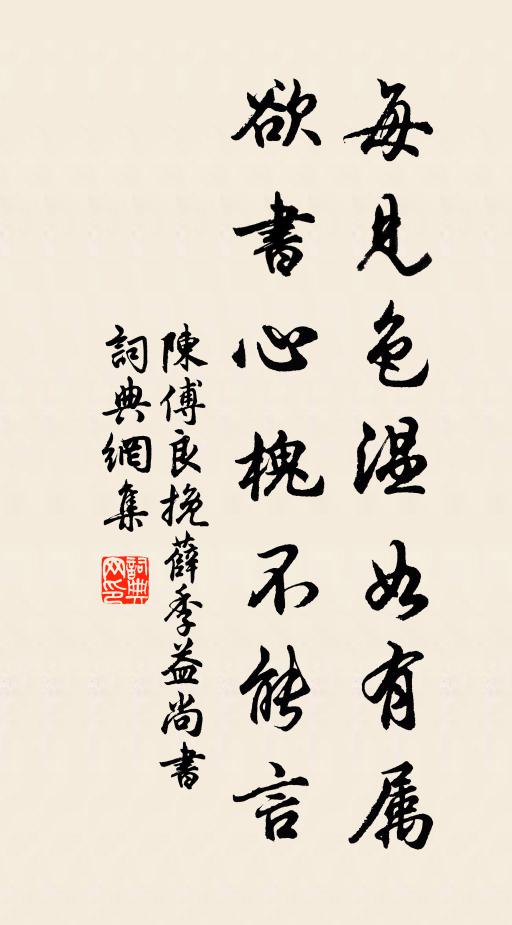 每見色温如有属
欲書心槐不能言
陳傅良挽薛季益尚書
詞典網集
詞典网印